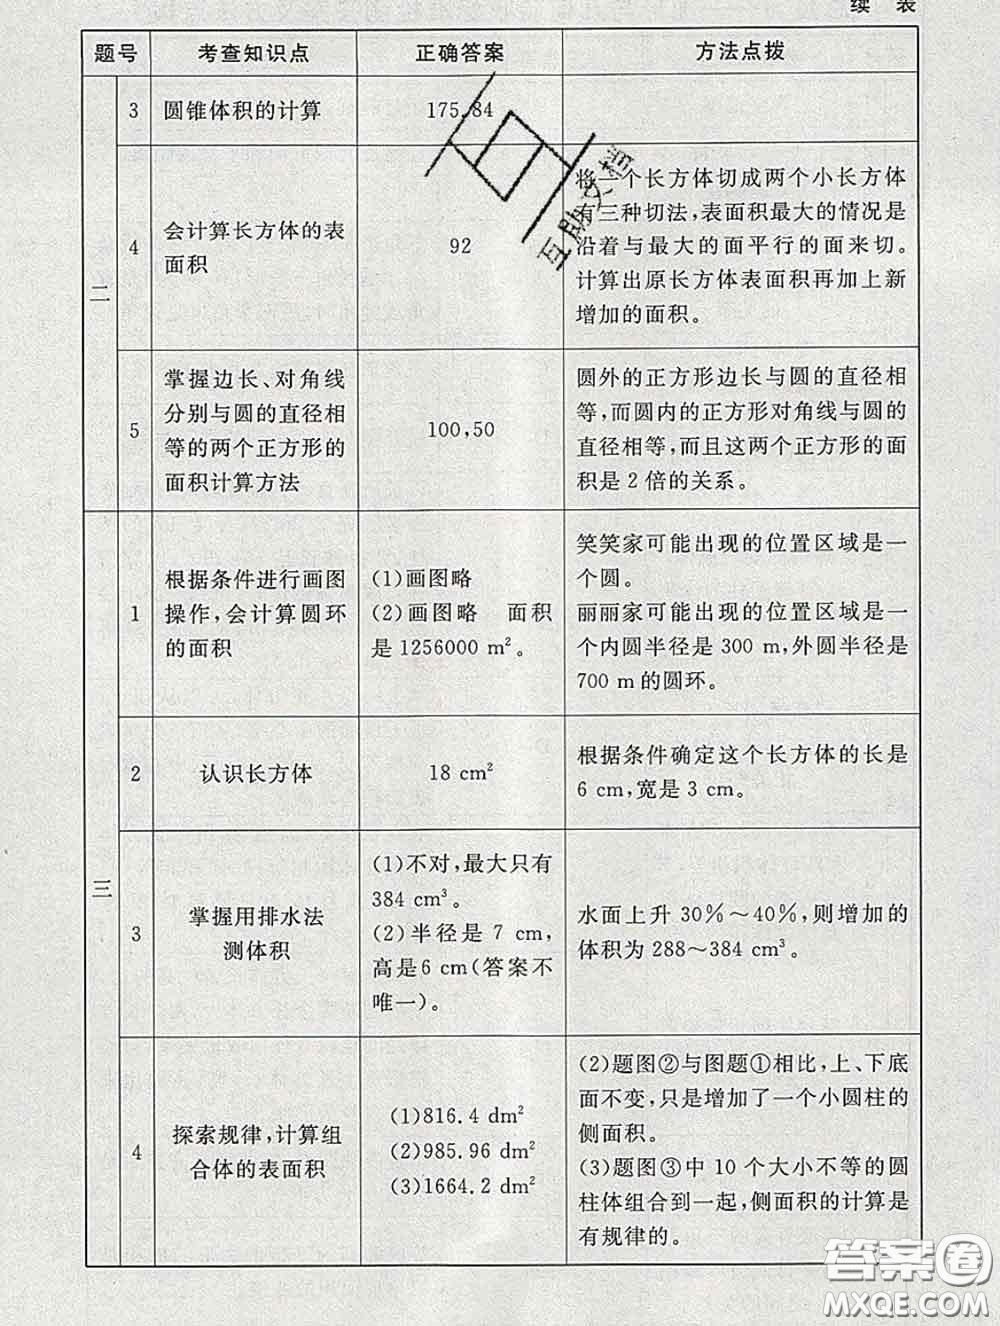 续 表
题号 考查知识点 正确答案 方法点拨
二
3 圆锥体积的计算 175.84
4
会计算长方体的表
面积
92
将一个长方体切成两个小长方体
有三种切法,表面积最大的情况是
沿着与最大的面平行的面来切。
计算出原长方体表面积再加上新
增加的面积。
5
掌握边长、对角线
分别与圆的直径相
等的两个正方形的
面积计算方法
100,50
圆外的正方形边长与圆的直径相
等,而圆内的正方形对角线与圆的
直径相等,而且这两个正方形的面
积是 2 倍的关系。
三
1
根据条件进行画图
操作,会计算圆环
的面积
(1)画图略
(2)画图略 面积
是 1256000 m²。
笑笑家可能出现的位置区域是一
个圆。
丽丽家可能出现的位置区域是一
个内圆半径是 300 m,外圆半径是
700 m的圆环。
2 认识长方体 18 cm²
根据条件确定这个长方体的长是
6 cm,宽是 3 cm。
3
掌握用排水法
测体积
(1)不对,最大只有
384 cm³。
(2)半径是 7 cm,
高是6 cm(答案不
唯一)。
水面上升 30%～40%,则增加的
体积为 288～384 cm³。
4
探索规律,计算组
合体的表面积
(1)816.4 dm²
(2)985.96 dm²
(3)1664.2 dm²
(2)题图②与图题①相比,上、下底
面不变,只是增加了一个小圆柱的
侧面积。
(3)题图③中 10 个大小不等的圆
柱体组合到一起,侧面积的计算是
有规律的。
答案圈
MXQE.COM